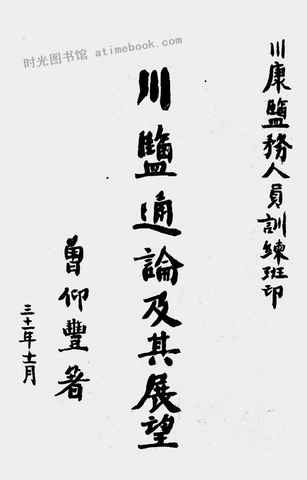 时光图书馆 atimebook.com
川康鹽務人員訓練班印
川鹽通論及其展望
曾仰豐著
三十一年十一月